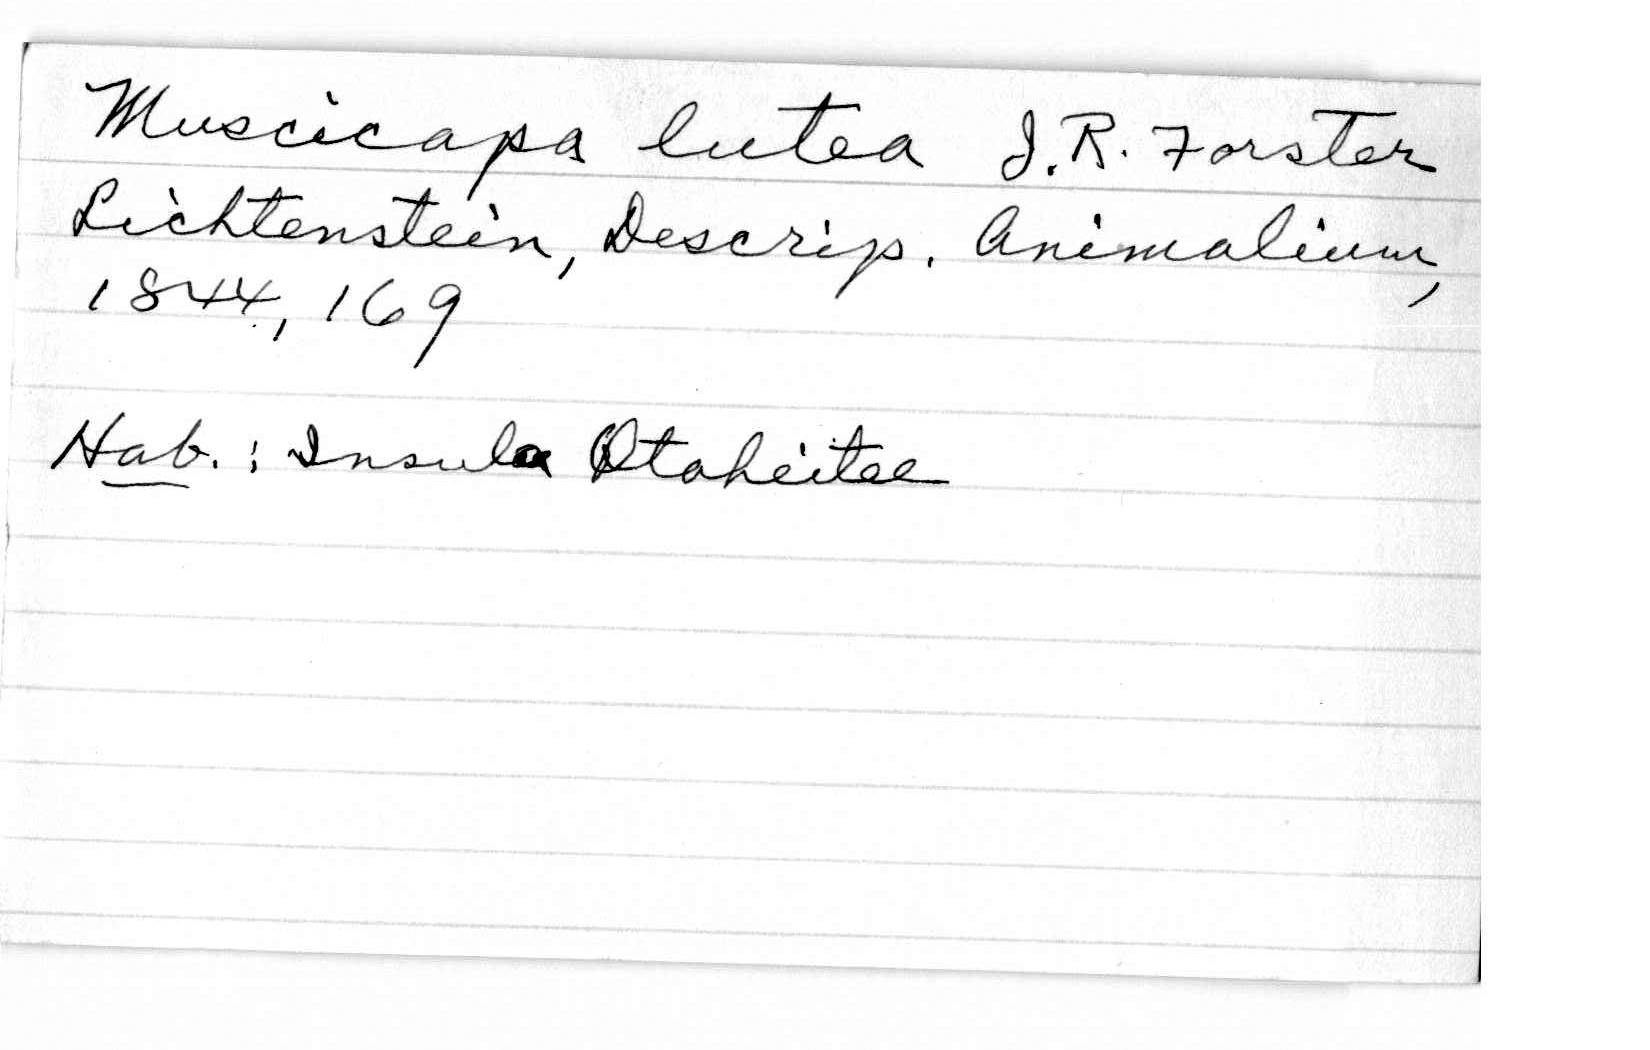 Muscicapa lutea J.R. Forster
Lichtenstein, Descrip. Animalium,
1844, 169
Hab. : Insula Otaheitee